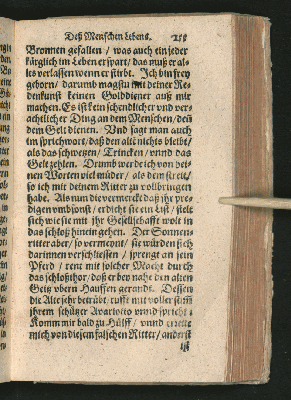 Deß Menschen Lebens. 255
Bronnen gefallen / was auch ein jeder
kärglich im Leben erspart / das muß er al-
les verlassen wenn er stirbt. Ich bin frey
geborn / darumb magstu mit deiner Re-
denkunst keinen Golddiener auß mir
machen. Es ist kein schendlicher vnd ver-
achtlicher Ding an dem Menschen / deñ
dem Gelt dienen. Vnd sagt man auch
im sprichwort / daß dem alt nichts bleibt /
als das schwetzen / Trincken / vnnd das
Gelt zehlen. Drumb werde ich von dei-
nen Worten viel müder / als dem streit /
so ich mit deinem Ritter zu vollbringen
habe. Als nun die vermerckt daß jhr pre-
digen vmbsonst / erdicht sie ein List / stelt
sich wie sie mit jhr Gesellschafft wolt in
das schloß hinein gehen. Der Sonnen-
ritter aber / so vermeynt / sie würden sich
darinnen verschliessen / sprenget an sein
Pferd / rent mit solcher Macht durch
das schloßthor / daß er bey nahe den alten
Geitz vbern Hauffen gerandt. Dessen
die Alte sehr betrübt / rufft mit voller stim̃
jhrem schützer Avaritio vnnd spricht:
Komm mir bald zu Hülff / vnnd errette
mich von diesem falschen Ritter / anderst
ist